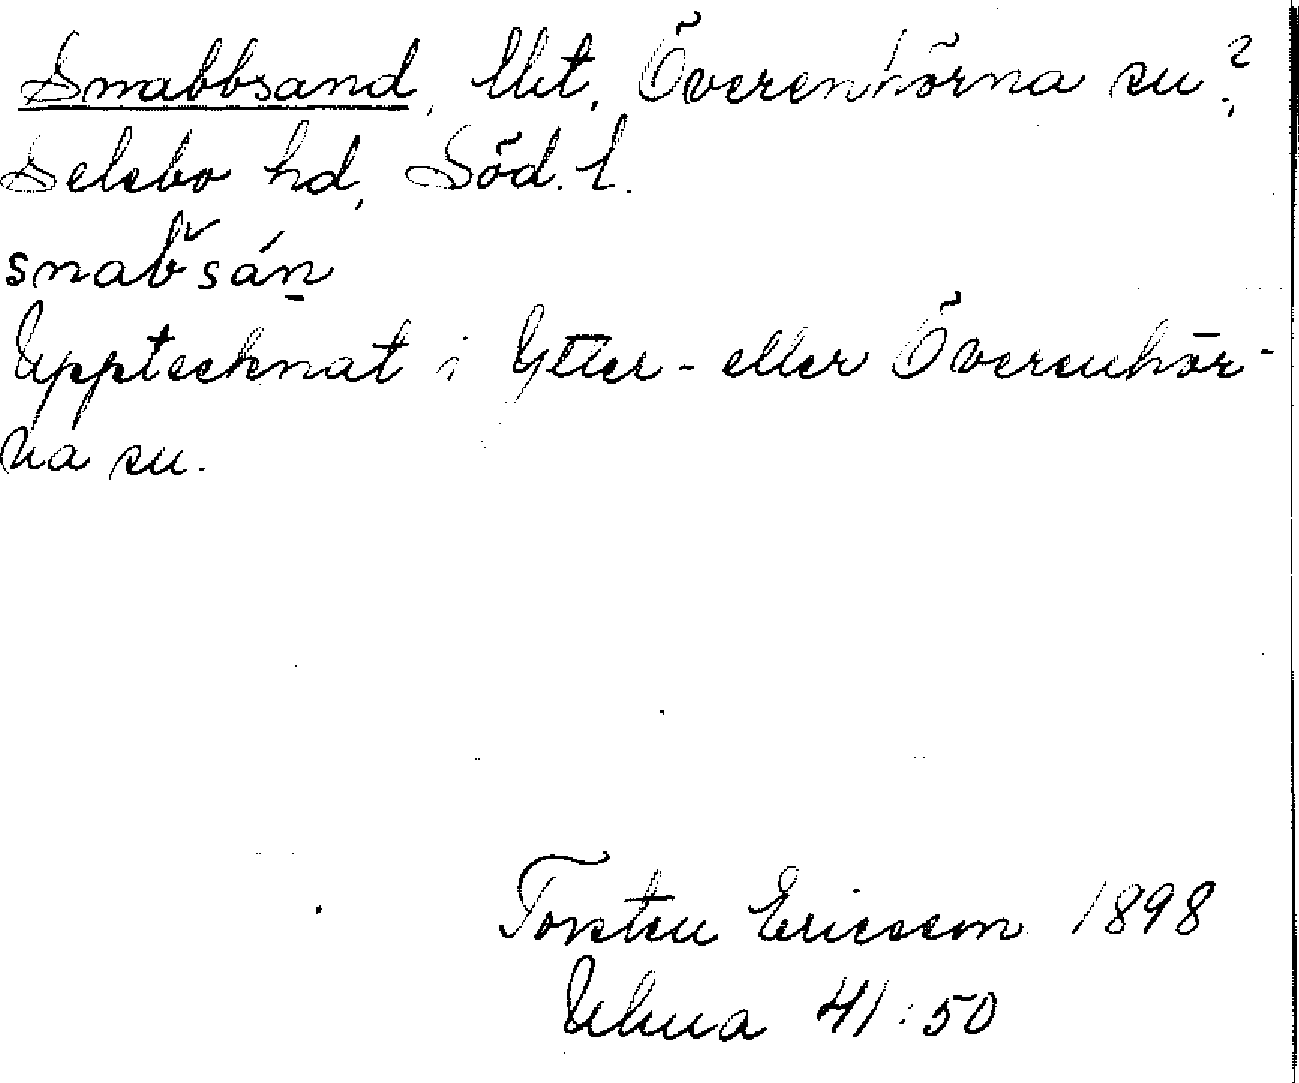 Snabbsand, Ubt. Överenhörna sn?,
Selebo hd, Söd. l.
snab̌sán̠
Upptecknat i Ytter- eller Överenhör-
na sn.
Torsten Ericsson 1898
Ulma 41:50